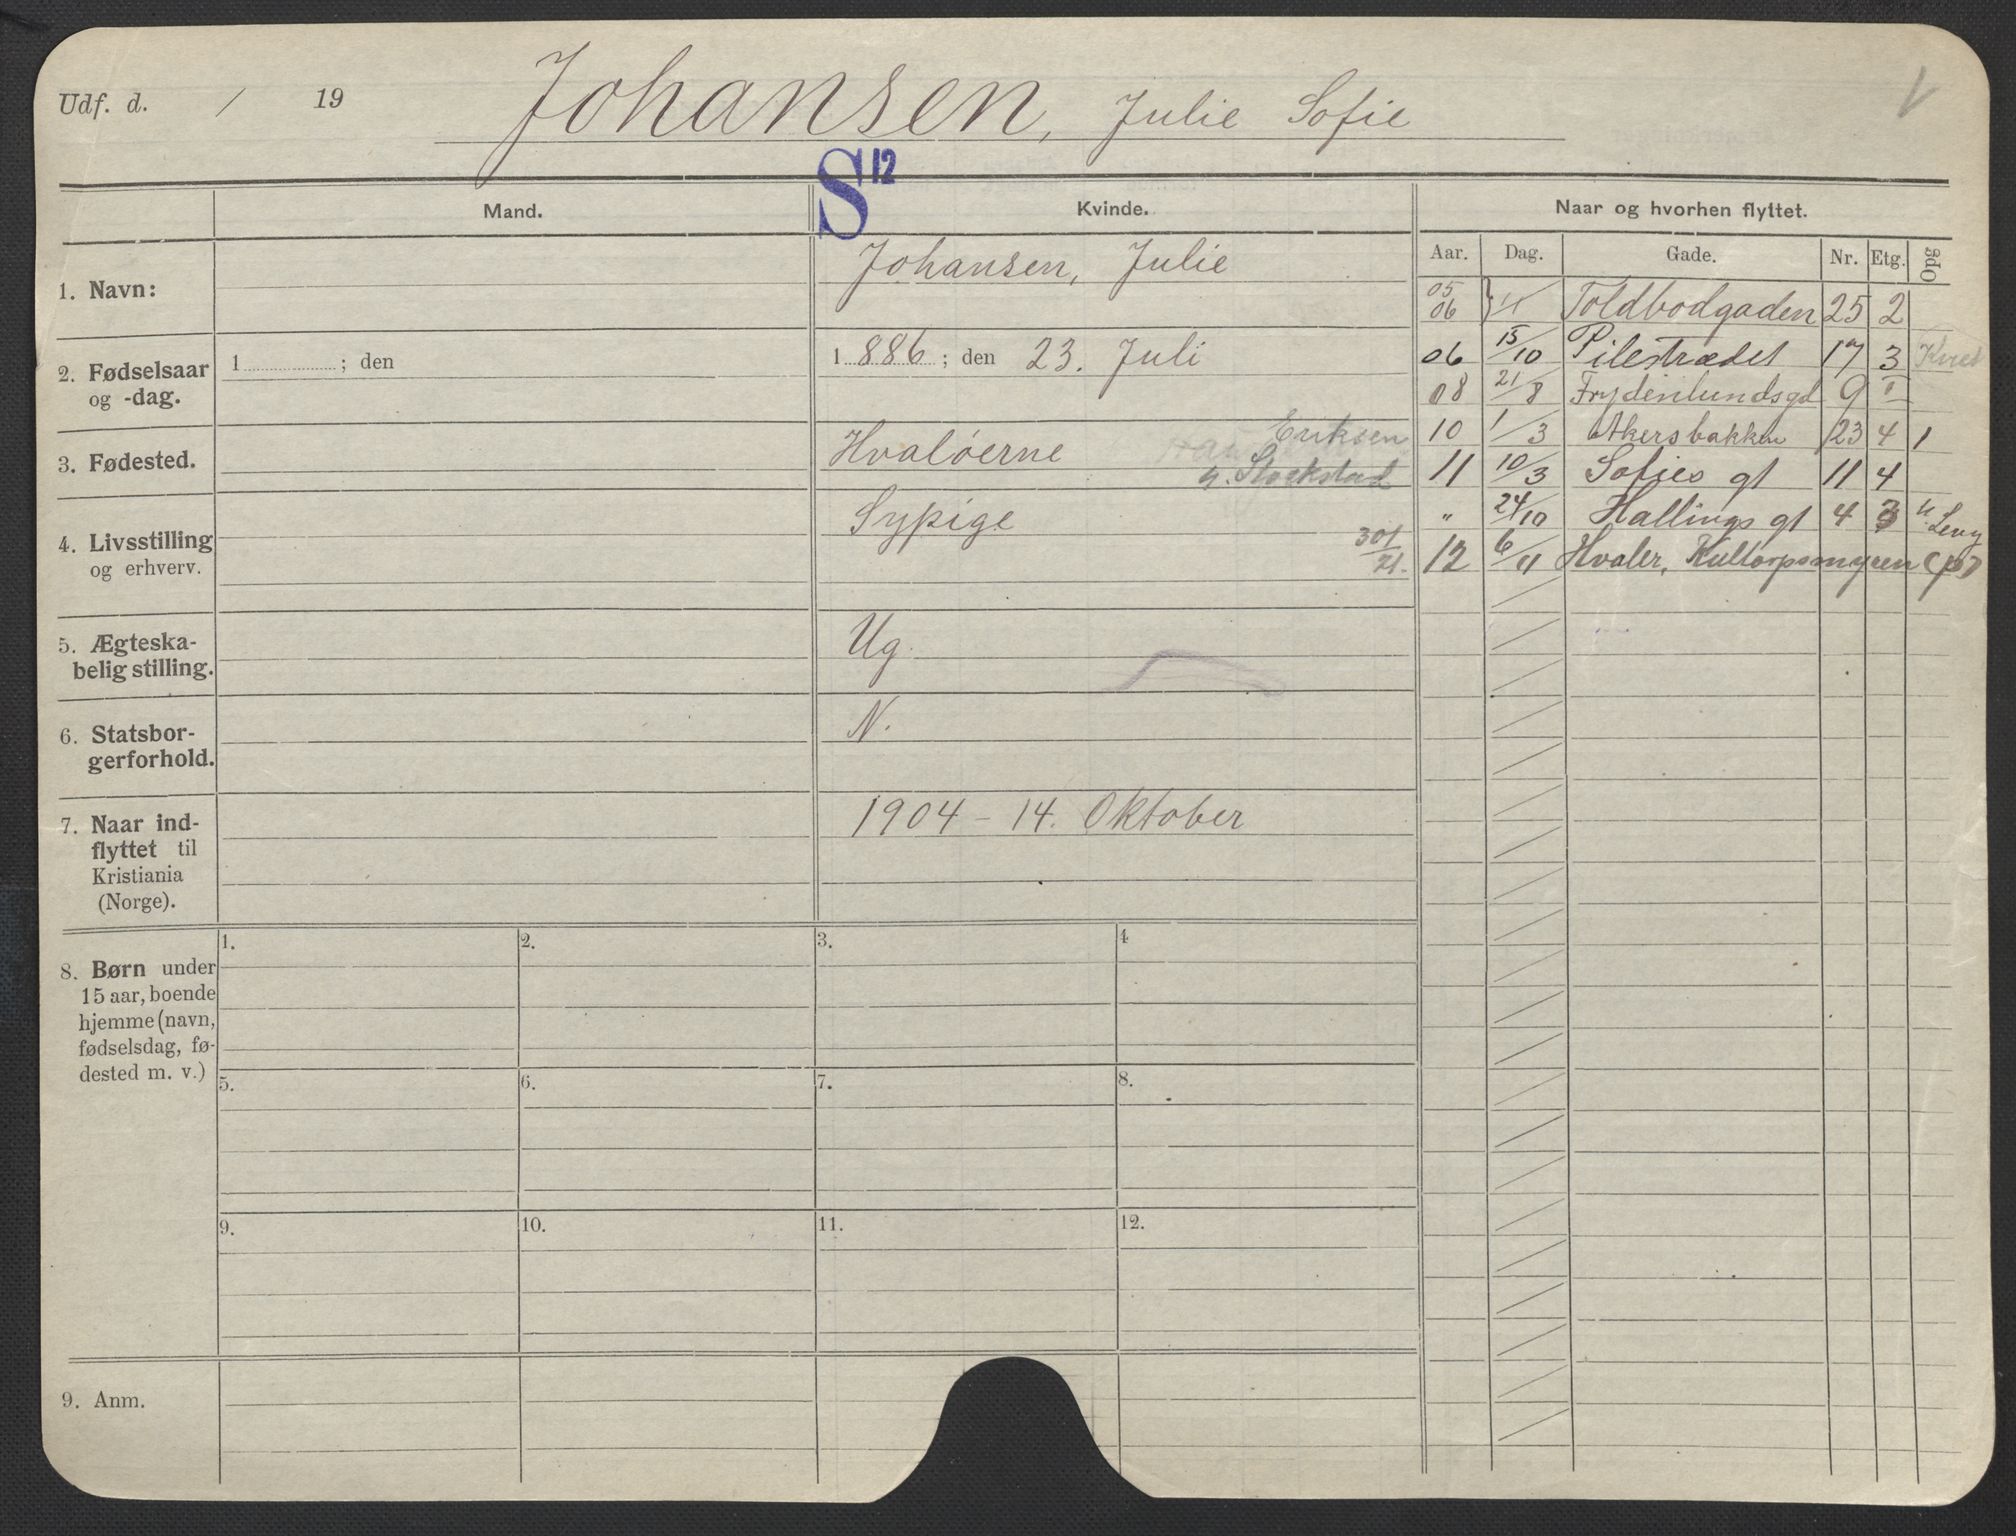 Udf. d. / 19
Johansen, Julie Sofie
S 12
Mand.
Kvinde.
Naar og hvorhen flyttet.
Aar. Dag. Gade. Nr. Etg. Opg
1. Navn:
Johansen, Julie
2. Fødselsaar
og -dag.
1 ; den
1 886 ; den 23. Juli
3. Fødested.
Hvaløerne
Eriksen
Stockstad
4. Livsstilling
og erhverv.
Sypige
301/21.
5. Ægteska-
belig stilling.
Ug.
6. Statsbor-
gerforhold.
N.
7. Naar ind-
flyttet til
Kristiania
(Norge).
1904 - 14. Oktober
05
06 } Toldbodgaden 25 2
06 15/10 Pilestrædet 17 3
08 21/8 Frydenlundsgd 9 I
10 1/3 Akersbakken 23 4 1
11 10/3 Sofies gt 11 4
" 24/10 Hallings gt 4 3 Levy
12 6/11 Hvaler,
8. Børn under
15 aar, boende
hjemme (navn,
fødselsdag, fø-
dested m. v.)
1. 2. 3. 4
5. 6. 7. 8.
9. 10. 11. 12.
9. Anm.